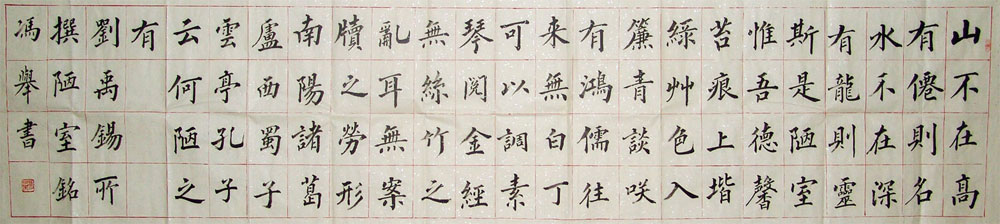 山不在高
有僊則名
水不在深
有龍則靈
斯是陋室
惟吾德馨
苔痕上堦
綠艸色入
簾青談咲
有鴻儒往
来無白丁
可以調素
琴閱金經
無絲竹之
亂耳無案
牘之勞形
南陽諸葛
廬西蜀子
雲亭孔子
云何陋之
有
劉禹錫所
撰陋室銘
馮舉書